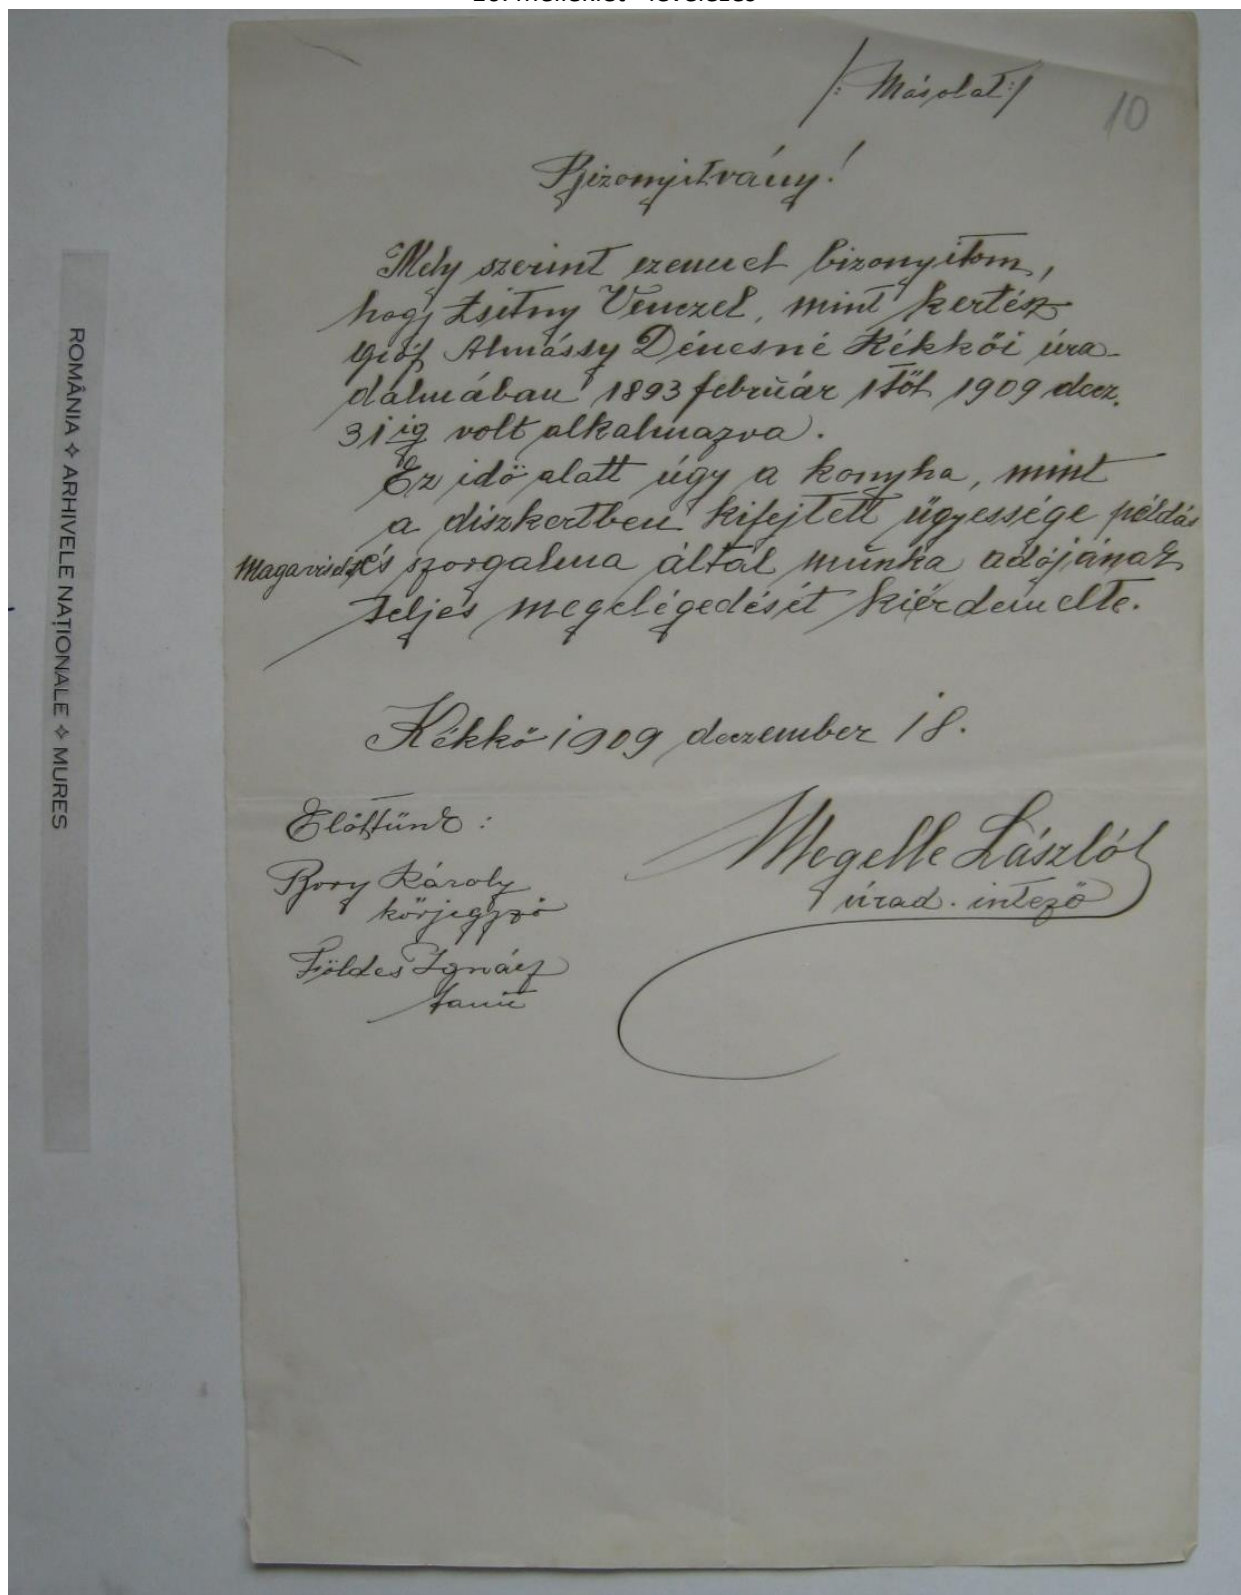 /: Másolat :/
10
Bizonyitvány!
Mely szerint ezennel bizonyitom,
hogy Zsitny Venczel, mint kertész
Gróf Almássy Dénesné Kékkői ura-
dalmában 1893 február 1től 1909 decz.
31 ig volt alkalmazva.
Ez idő alatt úgy a konyha, mint
a diszkertben kifejtett ügyessége példás
magaviselete és szorgalma által munka adójának
teljes megelégedését kiérdemelte.
Kékkő 1909 deczember 18.
Előttünk:
Bory Károly
körjegyző
Földes Ignácz
tanú
Megelle László
urad. intéző
ROMÂNIA ❖ ARHIVELE NAȚIONALE ❖ MURES